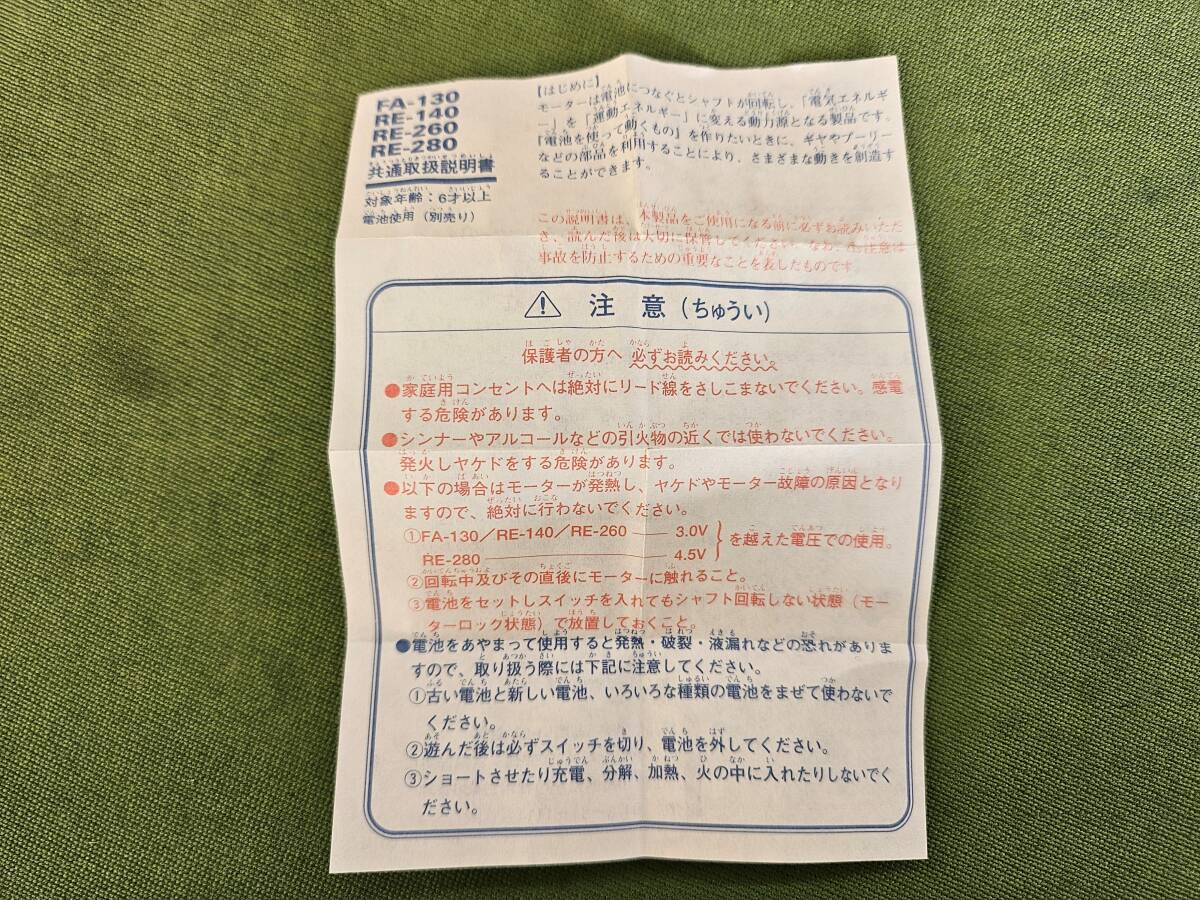 FA-130
RE-140
RE-260
RE-280
共通取扱説明書
対象年齢：6才以上
電池使用（別売り）
【はじめに】
モーターは電池につなぐとシャフトが回転し、「電気エネルギ
ー」を「運動エネルギー」に変える動力源となる製品です。
『電池を使って動くもの』を作りたいときに、ギヤやプーリー
などの部品を利用することにより、さまざまな動きを創造す
ることができます。
この説明書は、本製品をご使用になる前に必ずお読みいただ
き、読んだ後は大切に保管してください。なお、⚠注意は
事故を防止するための重要なことを表したものです
⚠ 注 意（ちゅうい）
保護者の方へ 必ずお読みください。
●家庭用コンセントへは絶対にリード線をさしこまないでください。感電
する危険があります。
●シンナーやアルコールなどの引火物の近くでは使わないでください。
発火しヤケドをする危険があります。
●以下の場合はモーターが発熱し、ヤケドやモーター故障の原因となり
ますので、絶対に行わないでください。
①FA-130／RE-140／RE-260 —— 3.0V
RE-280 —— 4.5V
を越えた電圧での使用。
②回転中及びその直後にモーターに触れること。
③電池をセットしスイッチを入れてもシャフト回転しない状態（モー
ターロック状態）で放置しておくこと。
●電池をあやまって使用すると発熱・破裂・液漏れなどの恐れがありま
すので、取り扱う際には下記に注意してください。
①古い電池と新しい電池、いろいろな種類の電池をまぜて使わないで
ください。
②遊んだ後は必ずスイッチを切り、電池を外してください。
③ショートさせたり充電、分解、加熱、火の中に入れたりしないでく
ださい。